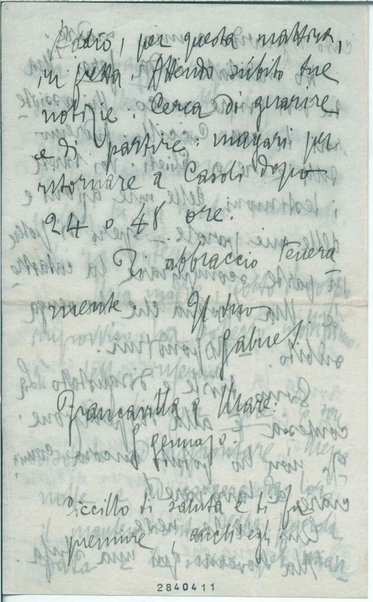 Addio, per questa mattina,
in fretta. Attendo subito tue
notizie. Cerca di guarire
e di partire, magari per
ritornare a Casoli dopo
24 o 48 ore.
Ti abbraccio tenera-
mente. Il tuo
Gabriel.
Francavilla a Mare
gennajo.
Ciccillo ti saluta e ti fa
premure, anch'egli.
2840411